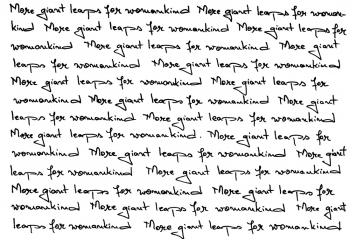 More giant leaps for womankind More giant leaps for woman-
kind More giant leaps for womankind More giant leaps for
womankind More giant leaps for womankind More giant
leaps for womankind More giant leaps for womankind
More giant leaps for womankind More giant leaps for
womankind More giant leaps for womankind More giant
leaps for womankind More giant leaps for womankind
More giant leaps for womankind. More giant leaps for
womankind More giant leaps for womankind More giant
leaps for womankind More giant leaps for womankind
More giant leaps for womankind More giant leaps for
womankind More giant leaps for womankind More giant
leaps for womankind More giant leaps for womankind